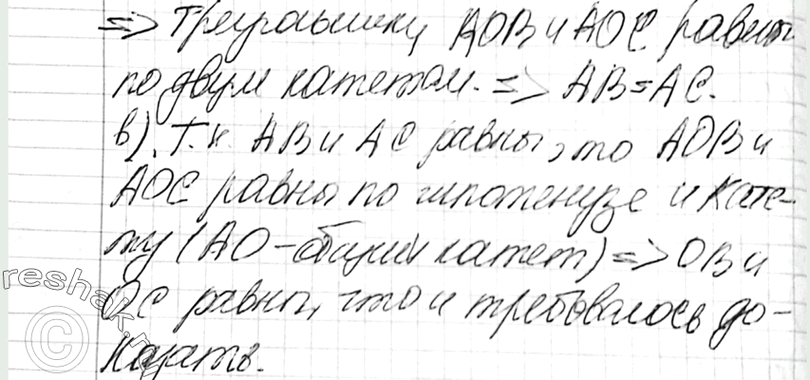 => Треугольники AOB и AOC равны
по двум катетам. => AB=AC.
в). Т.к. AB и AC равны, то AOB и
AOC равны по гипотенузе и кате-
ту (AO - общий катет) => OB и
OC равны, что и требовалось до-
казать.
reshak.ru
©